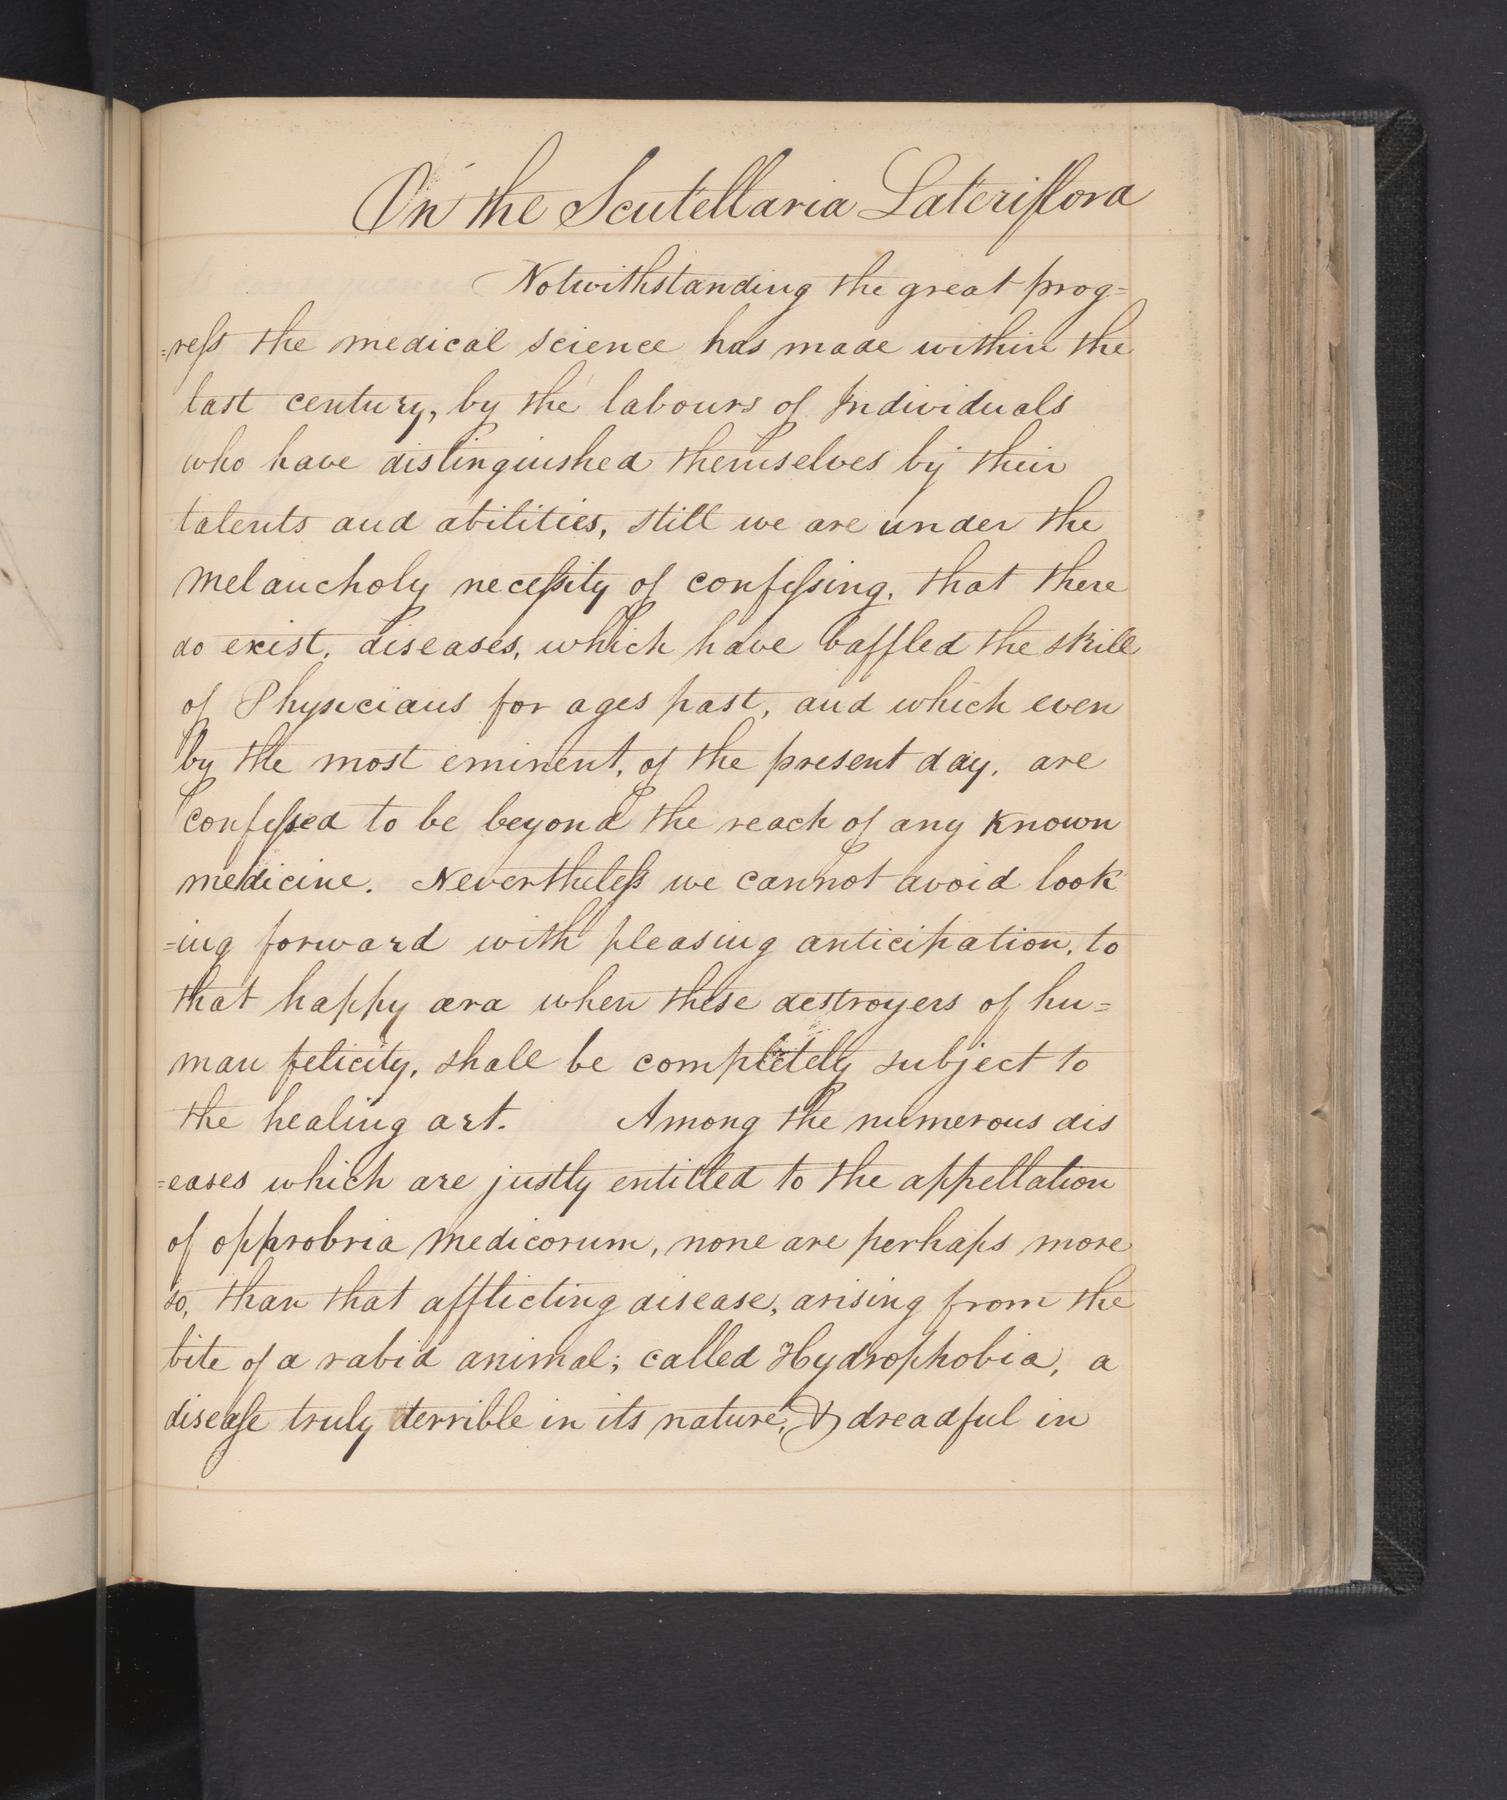 On the Scutellaria Lateriflora
Notwithstanding the great prog=
=reſs the medical science has made within the
last century, by the labours of Individuals
who have distinguished themselves by their
talents and abilities, still we are under the
melancholy neceſsity of confeſsing, that there
do exist, diseases, which have baffled the skill
of Physicians for ages past, and which even
by the most eminent, of the present day, are
confeſsed to be beyond the reach of any known
medicine. Nevertheleſs we cannot avoid look
=ing forward with pleasing anticipation, to
that happy æra when these destroyers of hu=
man felicity, shall be completely subject to
the healing art. Among the numerous dis
=eases which are justly entitled to the appellation
of opprobria medicorum, none are perhaps more
so, than that afflicting disease, arising from the
bite of a rabid animal; called Hydrophobia, a
diseaſe truly terrible in its nature, & dreadful in